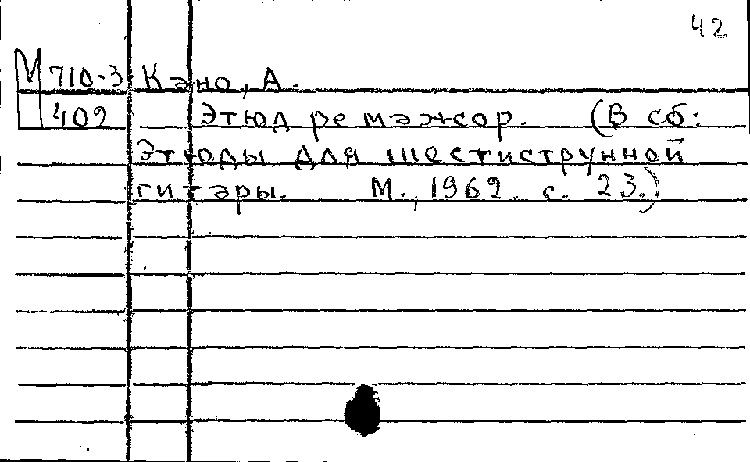 42
М 710-3 Кано, А.
402 Этюд ре мажор. (В сб:
Этюды для шестиструнной
гитары. М., 1962. с. 23.)